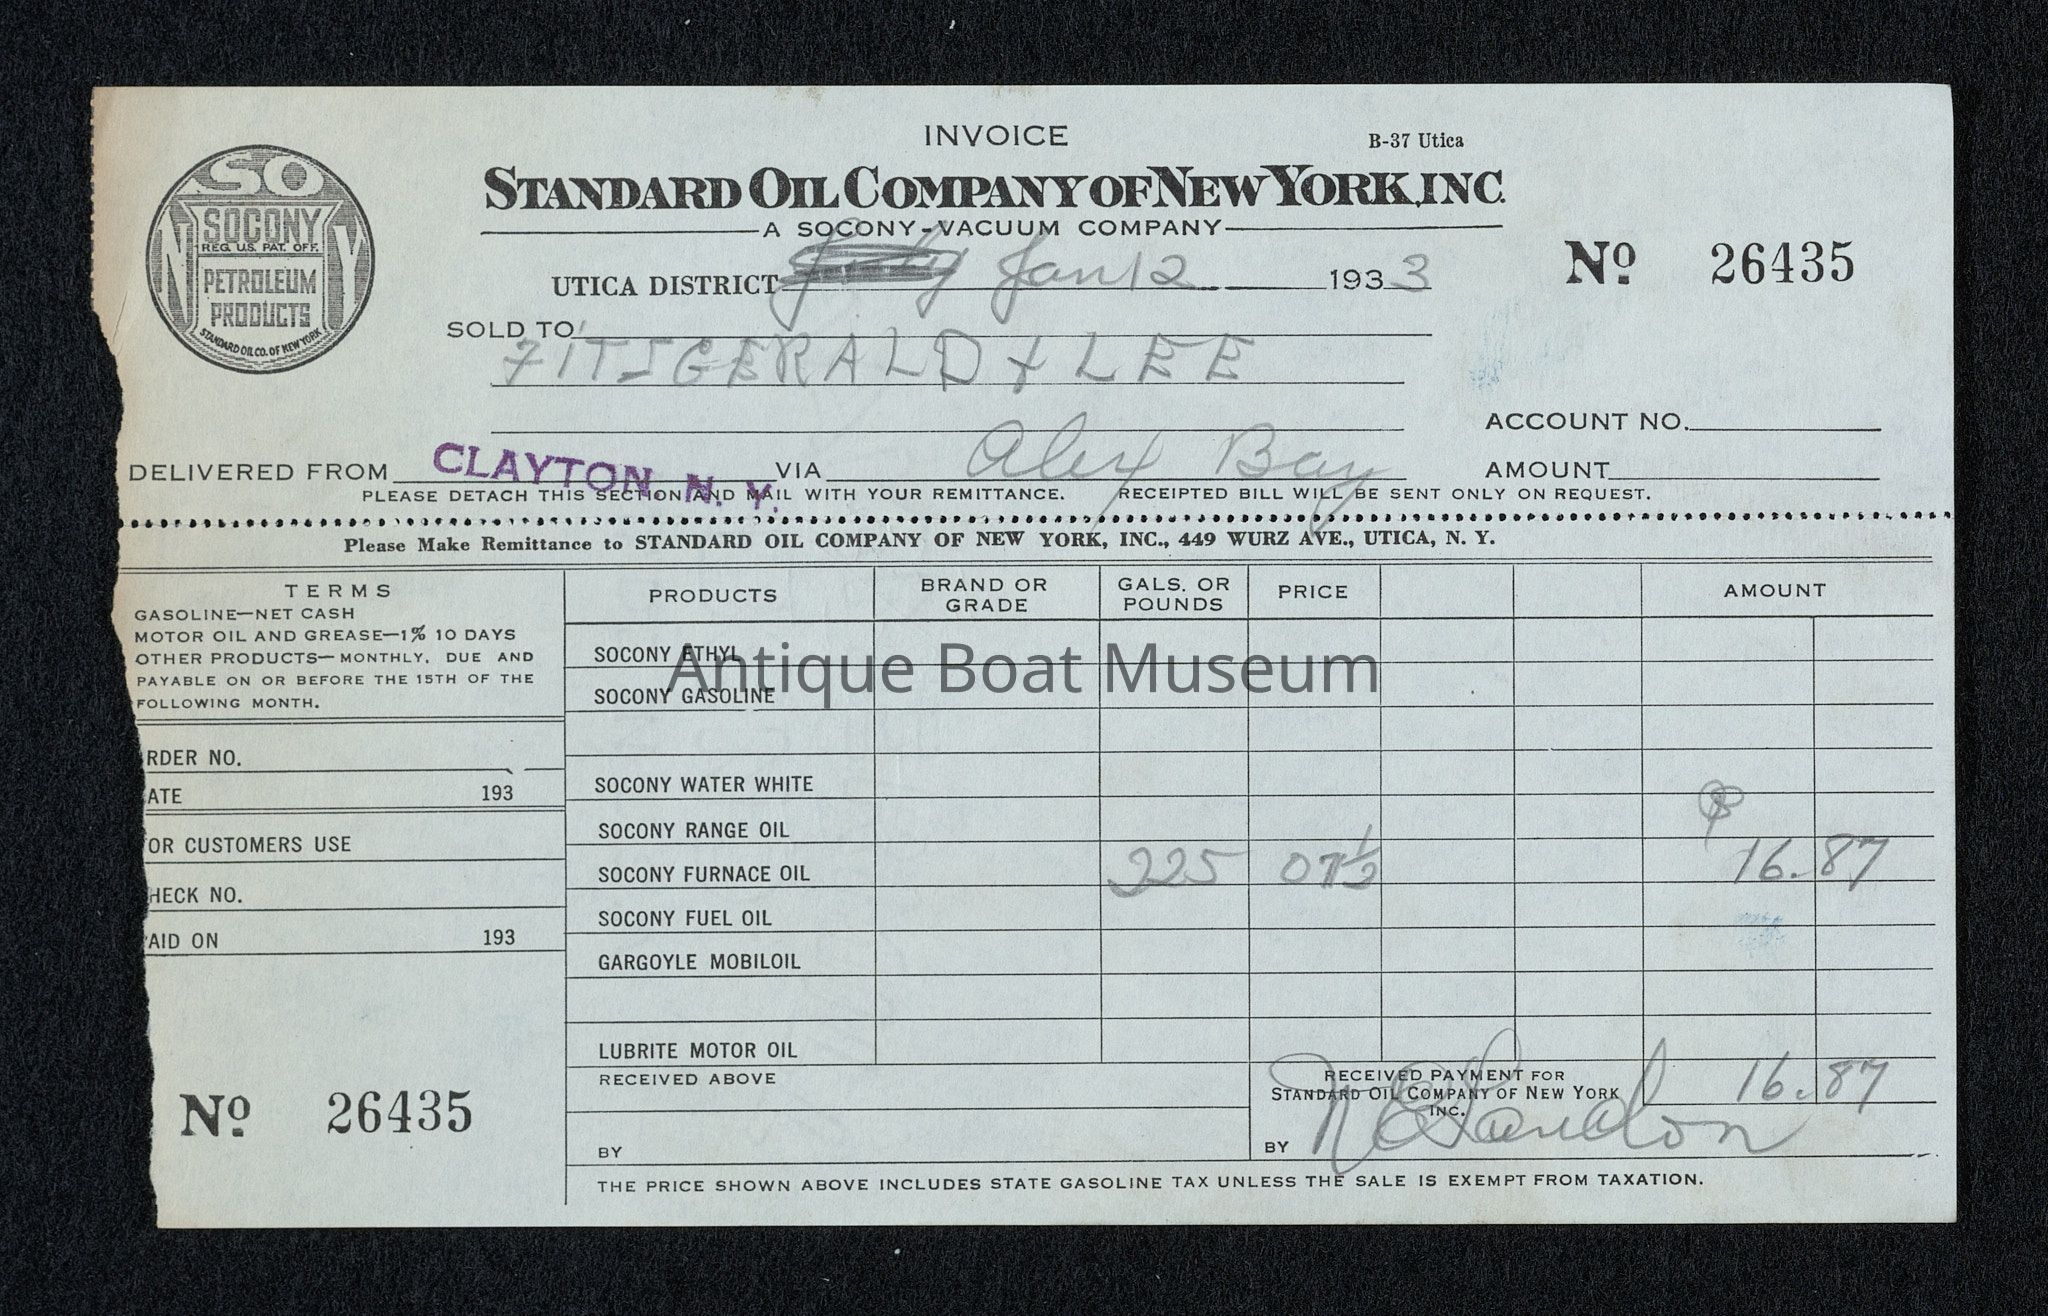 INVOICE
B-37 Utica
SO
NY
SOCONY
REG. U.S. PAT. OFF.
PETROLEUM
PRODUCTS
STANDARD OIL CO. OF NEW YORK
STANDARD OIL COMPANY OF NEW YORK, INC.
A SOCONY-VACUUM COMPANY
UTICA DISTRICT Jan 12 1933
No 26435
SOLD TO
FITSGERALD & LEE
ACCOUNT NO.
DELIVERED FROM CLAYTON, N. Y. VIA Alex Bay AMOUNT
PLEASE DETACH THIS SECTION AND MAIL WITH YOUR REMITTANCE. RECEIPTED BILL WILL BE SENT ONLY ON REQUEST.
Please Make Remittance to STANDARD OIL COMPANY OF NEW YORK, INC., 449 WURZ AVE., UTICA, N. Y.
TERMS
GASOLINE—NET CASH
MOTOR OIL AND GREASE—1% 10 DAYS
OTHER PRODUCTS—MONTHLY, DUE AND
PAYABLE ON OR BEFORE THE 15TH OF THE
FOLLOWING MONTH.
RDER NO.
ATE 193
OR CUSTOMERS USE
HECK NO.
AID ON 193
No 26435
PRODUCTS BRAND OR GRADE GALS. OR POUNDS PRICE AMOUNT
SOCONY ETHYL
SOCONY GASOLINE
Antique Boat Museum
SOCONY WATER WHITE
$
SOCONY RANGE OIL
SOCONY FURNACE OIL 225 07½ 16.87
SOCONY FUEL OIL
GARGOYLE MOBILOIL
LUBRITE MOTOR OIL
RECEIVED ABOVE
BY
RECEIVED PAYMENT FOR
STANDARD OIL COMPANY OF NEW YORK
INC.
16.87
BY
THE PRICE SHOWN ABOVE INCLUDES STATE GASOLINE TAX UNLESS THE SALE IS EXEMPT FROM TAXATION.